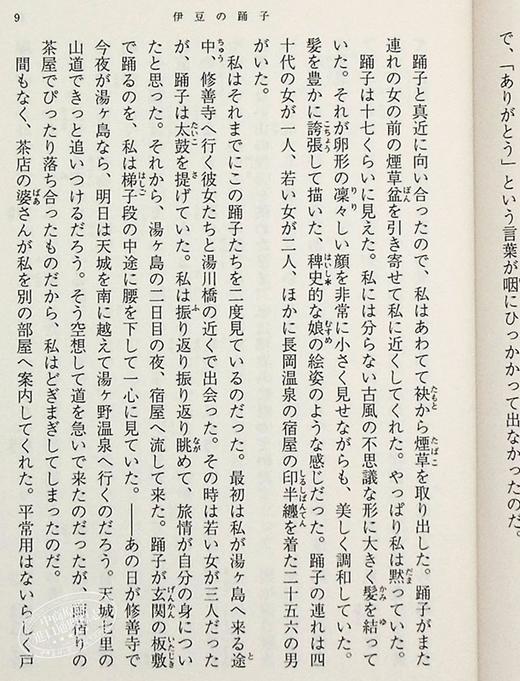 で、「ありがとう」という言葉が咽にひっかかって出なかったのだ。
伊豆の踊子
9
踊子と真近に向い合ったので、私はあわてて袂から煙草を取り出した。踊子がまた
連れの女の前の煙草盆を引き寄せて私に近くしてくれた。やっぱり私は黙っていた。
踊子は十七くらいに見えた。私には分らない古風の不思議な形に大きく髪を結って
いた。それが卵形の凜々しい顔を非常に小さく見せながらも、美しく調和していた。
髪を豊かに誇張して描いた、稗史的な娘の絵姿のような感じだった。踊子の連れは四
十代の女が一人、若い女が二人、ほかに長岡温泉の宿屋の印半纏を着た二十五六の男
がいた。
私はそれまでにこの踊子たちを二度見ているのだった。最初は私が湯ヶ島へ来る途
中、修善寺へ行く彼女たちと湯川橋の近くで出会った。その時は若い女が三人だった
が、踊子は太鼓を提げていた。私は振り返り振り返り眺めて、旅情が自分の身につい
たと思った。それから、湯ヶ島の二日目の夜、宿屋へ流して来た。踊子が玄関の板敷
で踊るのを、私は梯子段の中途に腰を下して一心に見ていた。――あの日が修善寺で
今夜が湯ヶ島なら、明日は天城を南に越えて湯ヶ野温泉へ行くのだろう。天城七里の
山道できっと追いつけるだろう。そう空想して道を急いで来たのだったが、宿りの
茶屋でぴったり落ち合ったものだから、私はどぎまぎしてしまったのだ。
間もなく、茶店の婆さんが私を別の部屋へ案内してくれた。平常用はないらしく戸